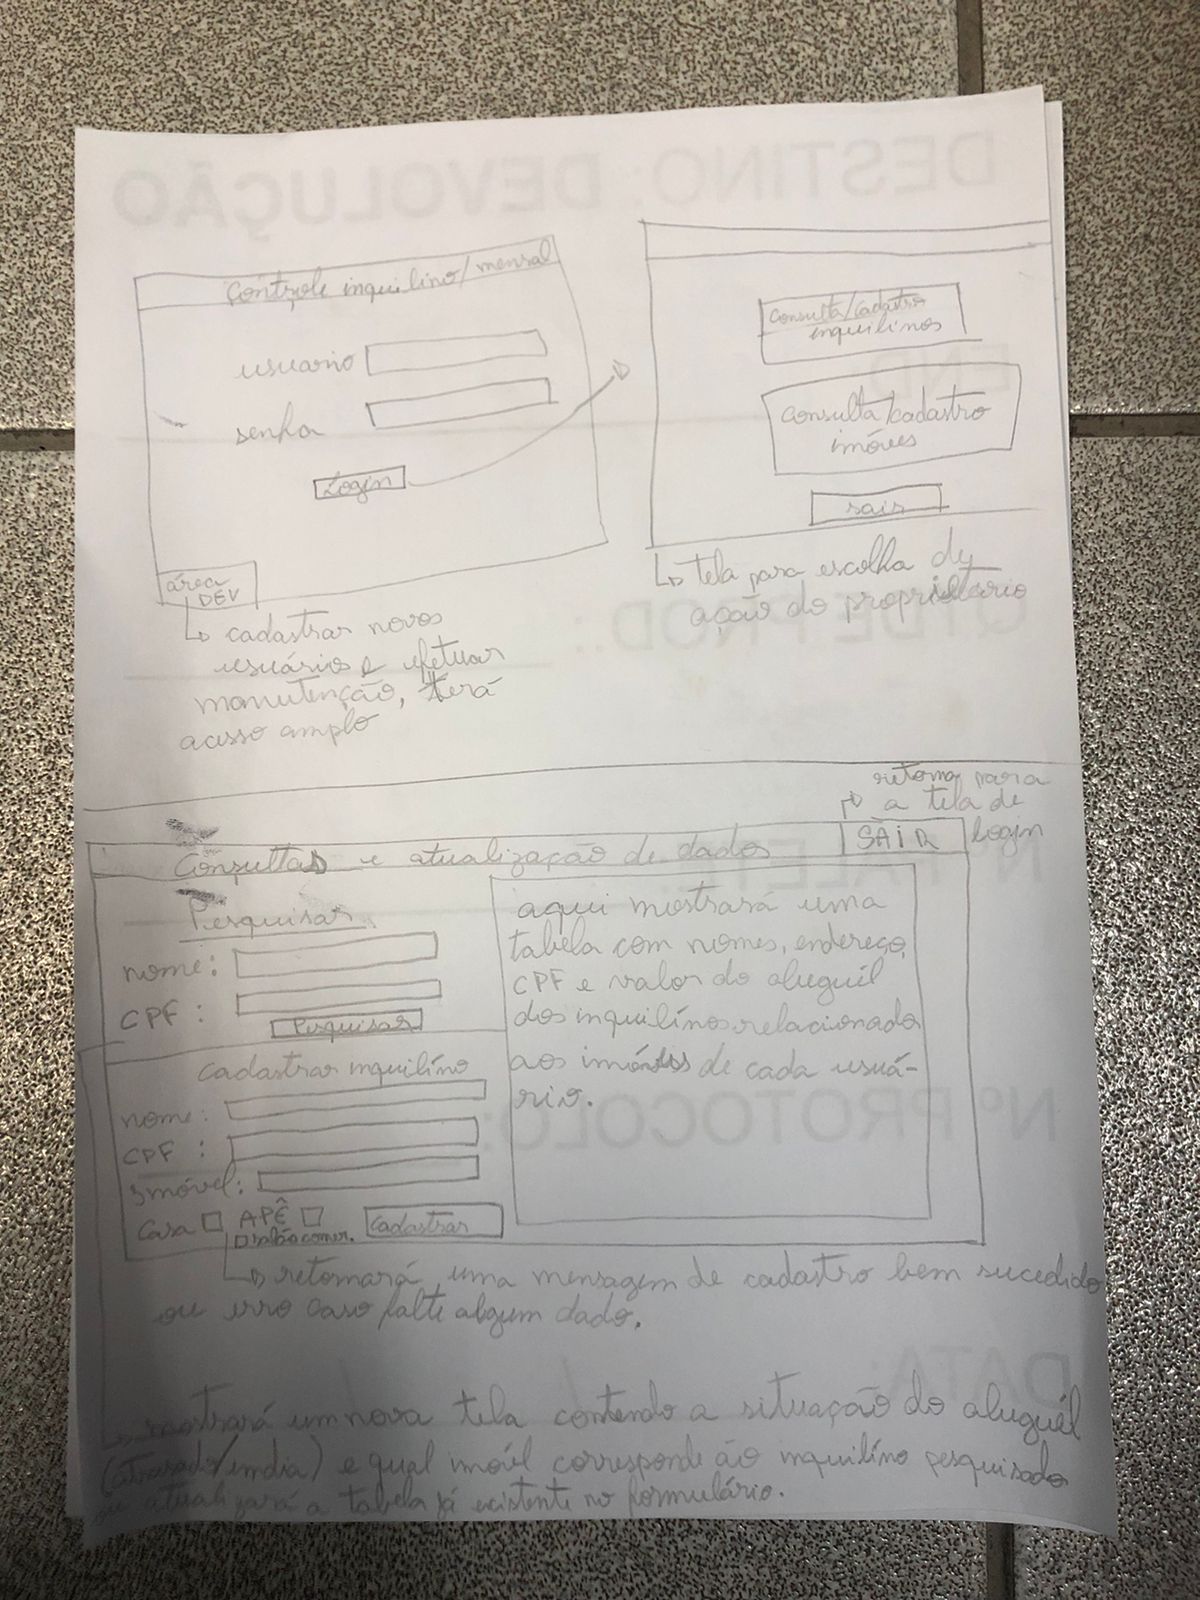 DESTINO: DEVOLUÇÃO
Controle inquilino/mensal
usuario
senha
Login
área
DEV
↳ cadastrar novos
usuários e efetuar
manutenção, terá
acesso amplo
consulta/cadastro
inquilinos
END:
consulta/cadastro
imóveis
sair
↳ tela para escolha de
ação do proprietário
QTDE PROD.:
retorna para
a tela de
Login
SAIR
Consultas e atualização de dados
Nº PALETE:
Pesquisar
nome:
CPF:
Pesquisar
cadastrar inquilino
nome:
CPF :
Imóvel:
Casa APÊ
salão comer.
Cadastrar
aqui mostrará uma
tabela com nomes, endereço,
CPF e valor do aluguél
dos inquilínos relacionado
aos imóveis de cada usuá-
rio.
Nº PROTOCOLO:
↳ retornará uma mensagem de cadastro bem sucedido
ou erro caso falte algum dado.
DATA: / /
↳ mostrará um nova tela contendo a situação do aluguél
(atrasado/em dia) e qual imóvel corresponde ao inquilíno pesquisado
ou atualizará a tabela já existente no formulário.